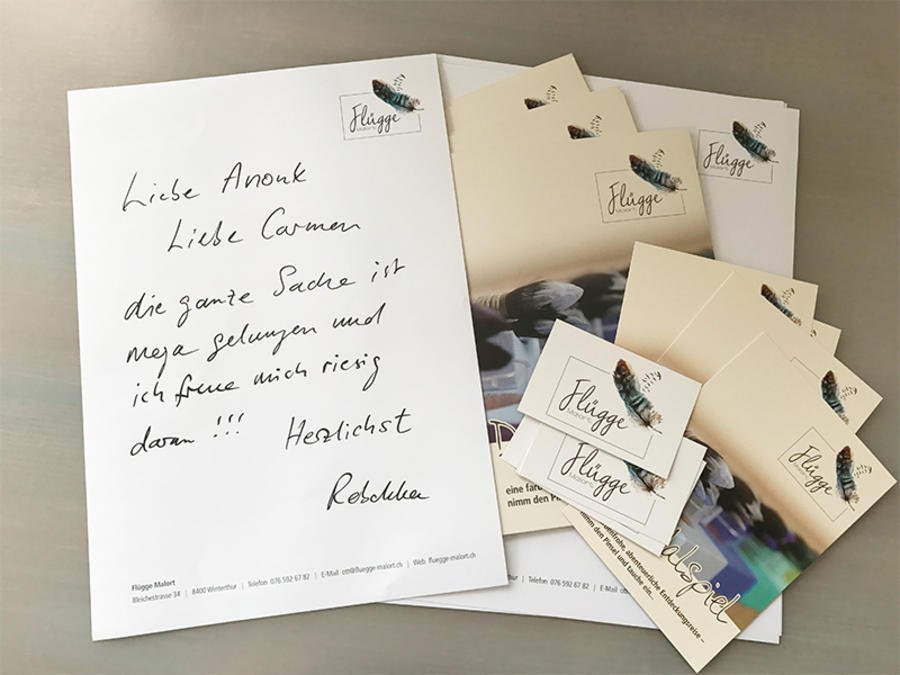 Flügge
Malort
Liebe Anouk
Liebe Carmen
die ganze Sache ist
mega gelungen und
ich freue mich riesig
daran !!! Herzlichst
Rebekka
Flügge Malort
Bleichestrasse 34 | 8400 Winterthur | Telefon 076 592 67 82 | E-Mail ott@fluegge-malort.ch | Web fluegge-malort.ch
Flügge
Malort
Flügge
Malort
eine farb
nimm den Pins
Flügge
Malort
Flügge
Malort
Flügge
Malort
alspiel
enfrohe, abenteuerliche Entdeckungsreise –
nimm den Pinsel und Lausche ein...
thur | Telefon 076 592 67 82 | E-Mail ott